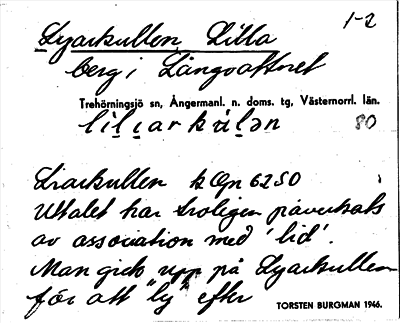 1-2
Lyarkullen, Lilla
berg i Långvattnet
Trehörningsjö sn, Ångermanl. n. doms. tg, Västernorrl. län.
80
Liarkullen k Gn 6250
Uttalet har troligen påverkats
av association med 'lid'.
Man gick upp på Lyarkullen
för att "ly" efter
TORSTEN BURGMAN 1946.